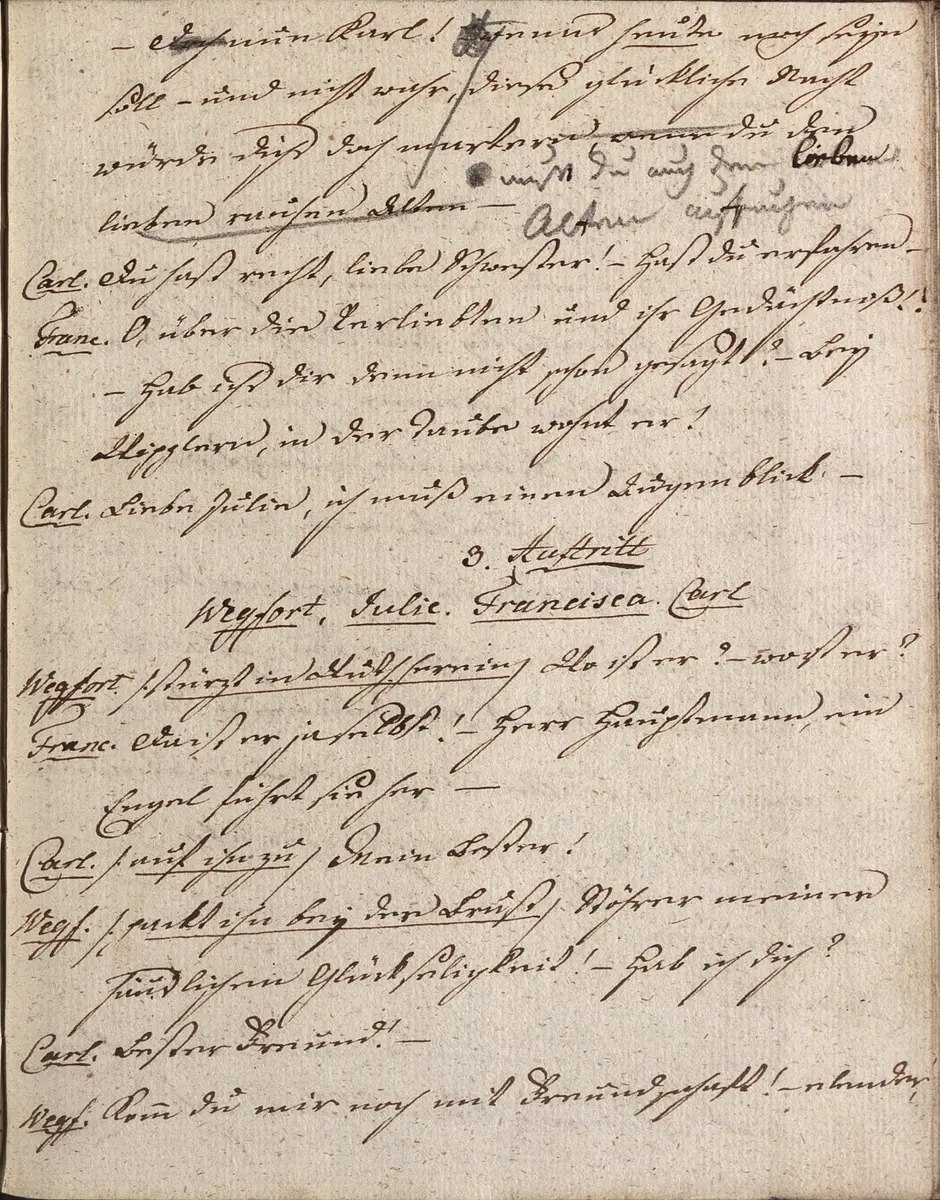 – Doch nun Karl! wenns heute noch seyn
soll – und nicht wahr, diese glückliche Nacht
würde dich doch martern, wenn du den
lieben rauhen Alten –
mußt du auch den lieben
Alten aufsuchen
Carl. Du hast recht, liebe Schwester! – Hast du erfahren –
Franc. O, über die Verliebten und ihr Gedächtnoß!
– Hab ich dir denn nicht schon gesagt? – Bey
Wipplern, in der Taube wohnt er!
Carl. Liebe Julie, ich muß einen Augenblick –
3. Auftritt
Wegfort, Julie. Francisca. Carl
Wegfort. /: stürzt in Wuth herein / Wo ist er? – wo ist er?
Franc. Da ist er ja selbst! – Herr Hauptmann, ein
Engel führt sie her –
Carl. /: auf ihn zu / Mein Bester!
Wegf. /: pakt ihn bey der Brust / Stöhrer meiner
häuslichen Glückseligkeit! – Hab ich dich?
Carl. Bester Freund! –
Wegf. Kom̅ du mir noch mit Freundschaft! – elender,